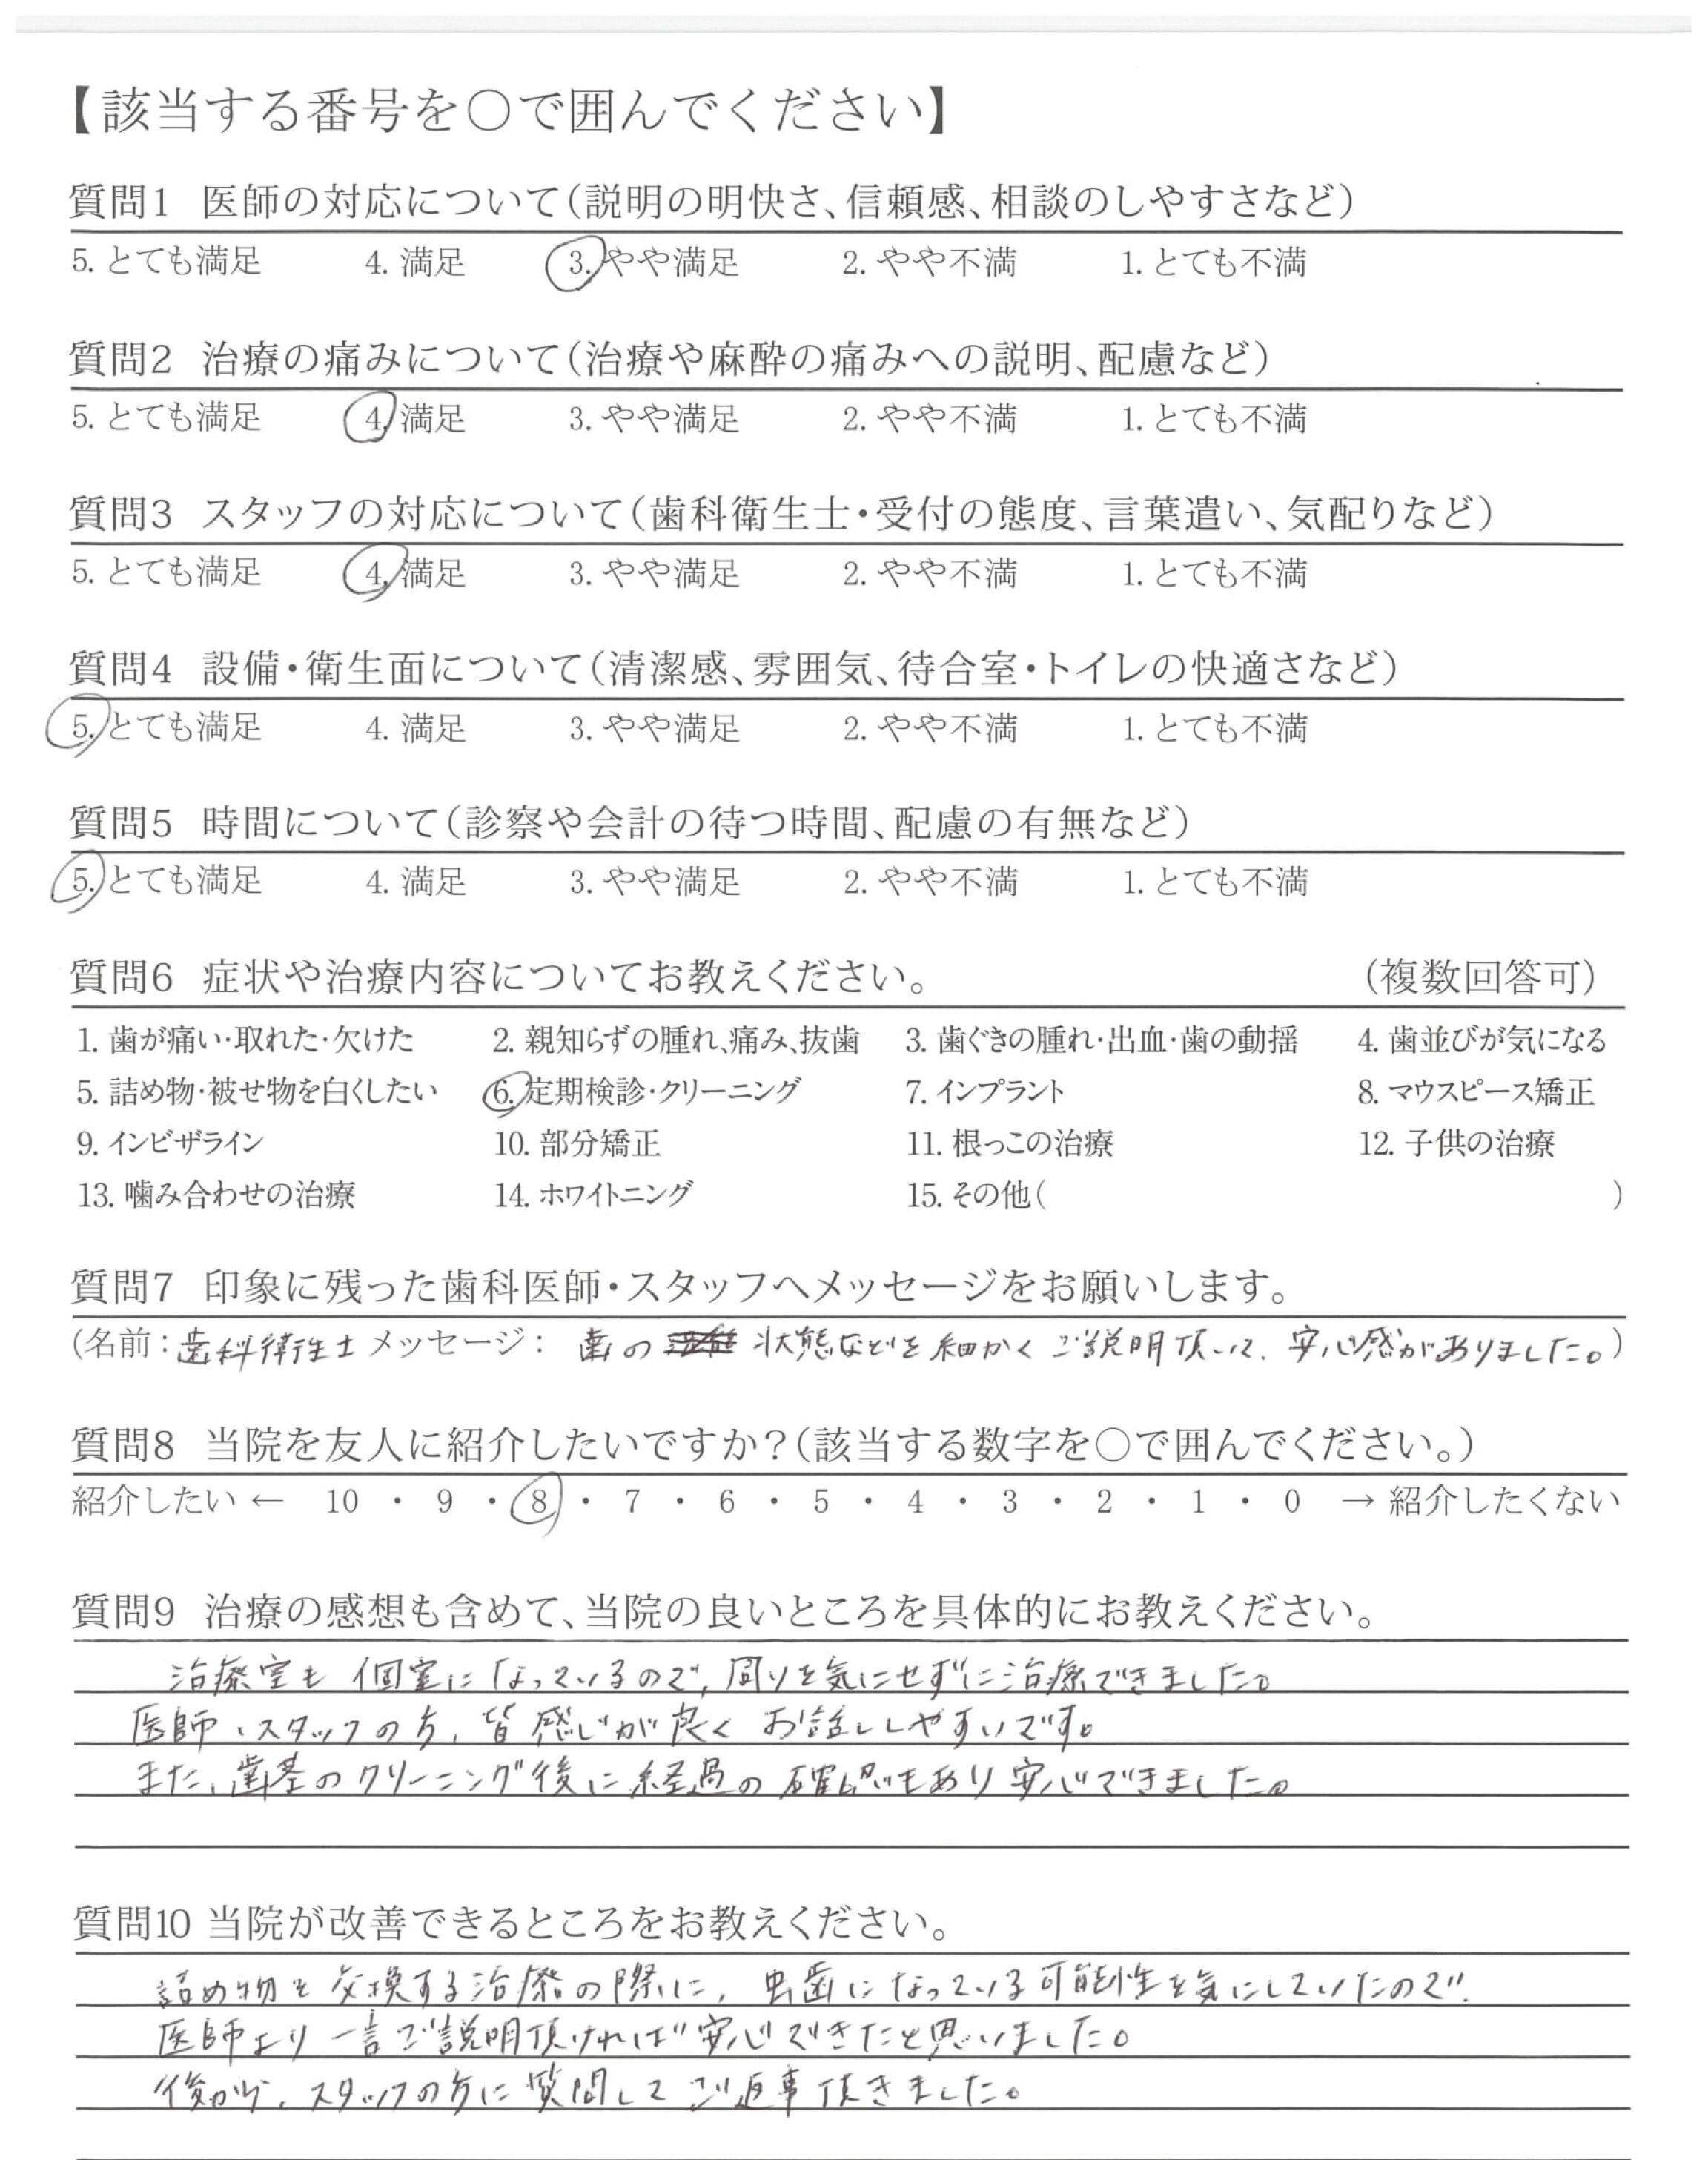 【該当する番号を○で囲んでください】
質問1 医師の対応について(説明の明快さ、信頼感、相談のしやすさなど)
5. とても満足 4. 満足 3. やや満足 2. やや不満 1. とても不満
質問2 治療の痛みについて(治療や麻酔の痛みへの説明、配慮など)
5. とても満足 4. 満足 3. やや満足 2. やや不満 1. とても不満
質問3 スタッフの対応について(歯科衛生士・受付の態度、言葉遣い、気配りなど)
5. とても満足 4. 満足 3. やや満足 2. やや不満 1. とても不満
質問4 設備・衛生面について(清潔感、雰囲気、待合室・トイレの快適さなど)
5. とても満足 4. 満足 3. やや満足 2. やや不満 1. とても不満
質問5 時間について(診察や会計の待つ時間、配慮の有無など)
5. とても満足 4. 満足 3. やや満足 2. やや不満 1. とても不満
質問6 症状や治療内容についてお教えください。 (複数回答可)
1. 歯が痛い・取れた・欠けた 2. 親知らずの腫れ、痛み、抜歯 3. 歯ぐきの腫れ・出血・歯の動揺 4. 歯並びが気になる
5. 詰め物・被せ物を白くしたい 6. 定期検診・クリーニング 7. インプラント 8. マウスピース矯正
9. インビザライン 10. 部分矯正 11. 根っこの治療 12. 子供の治療
13. 噛み合わせの治療 14. ホワイトニング 15. その他( )
質問7 印象に残った歯科医師・スタッフへメッセージをお願いします。
(名前:歯科衛生士 メッセージ: 歯の 状態などを細かくご説明頂いて、安心感がありました。)
質問8 当院を友人に紹介したいですか?(該当する数字を○で囲んでください。)
紹介したい ← 10 ・ 9 ・ 8 ・ 7 ・ 6 ・ 5 ・ 4 ・ 3 ・ 2 ・ 1 ・ 0 → 紹介したくない
質問9 治療の感想も含めて、当院の良いところを具体的にお教えください。
治療室も個室になっているので、周りを気にせずに治療できました。
医師、スタッフの方、皆感じが良くお話ししやすいです。
また、歯茎のクリーニング後に経過の確認もあり安心できました。
質問10 当院が改善できるところをお教えください。
詰め物を交換する治療の際に、虫歯になっている可能性を気にしていたので、
医師より一言ご説明頂ければ安心できたと思いました。
後から、スタッフの方に質問してご返事頂きました。